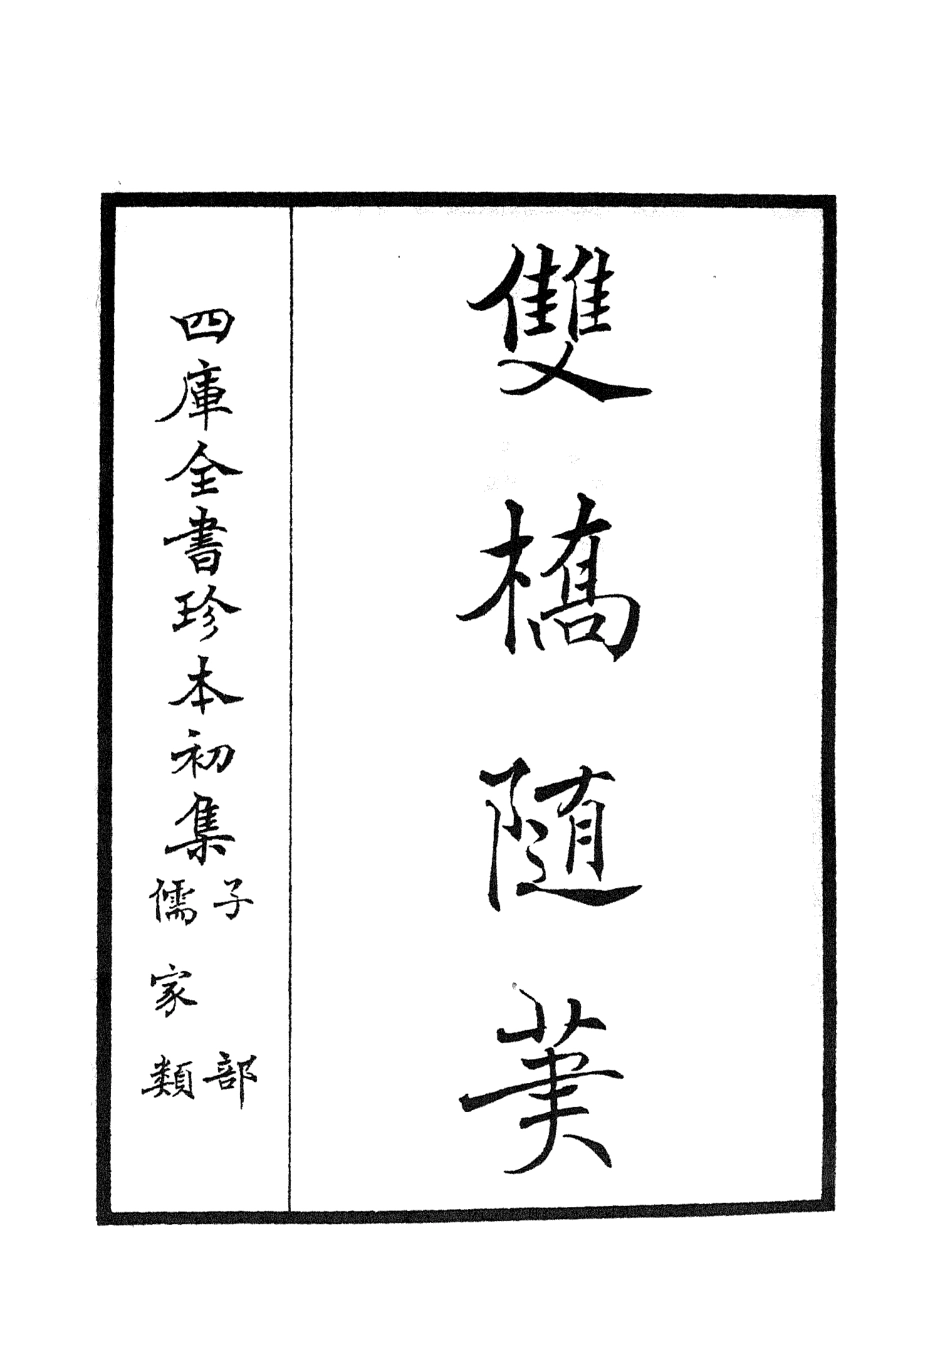 雙橋随筆
四庫全書珍本初集
子部
儒家類